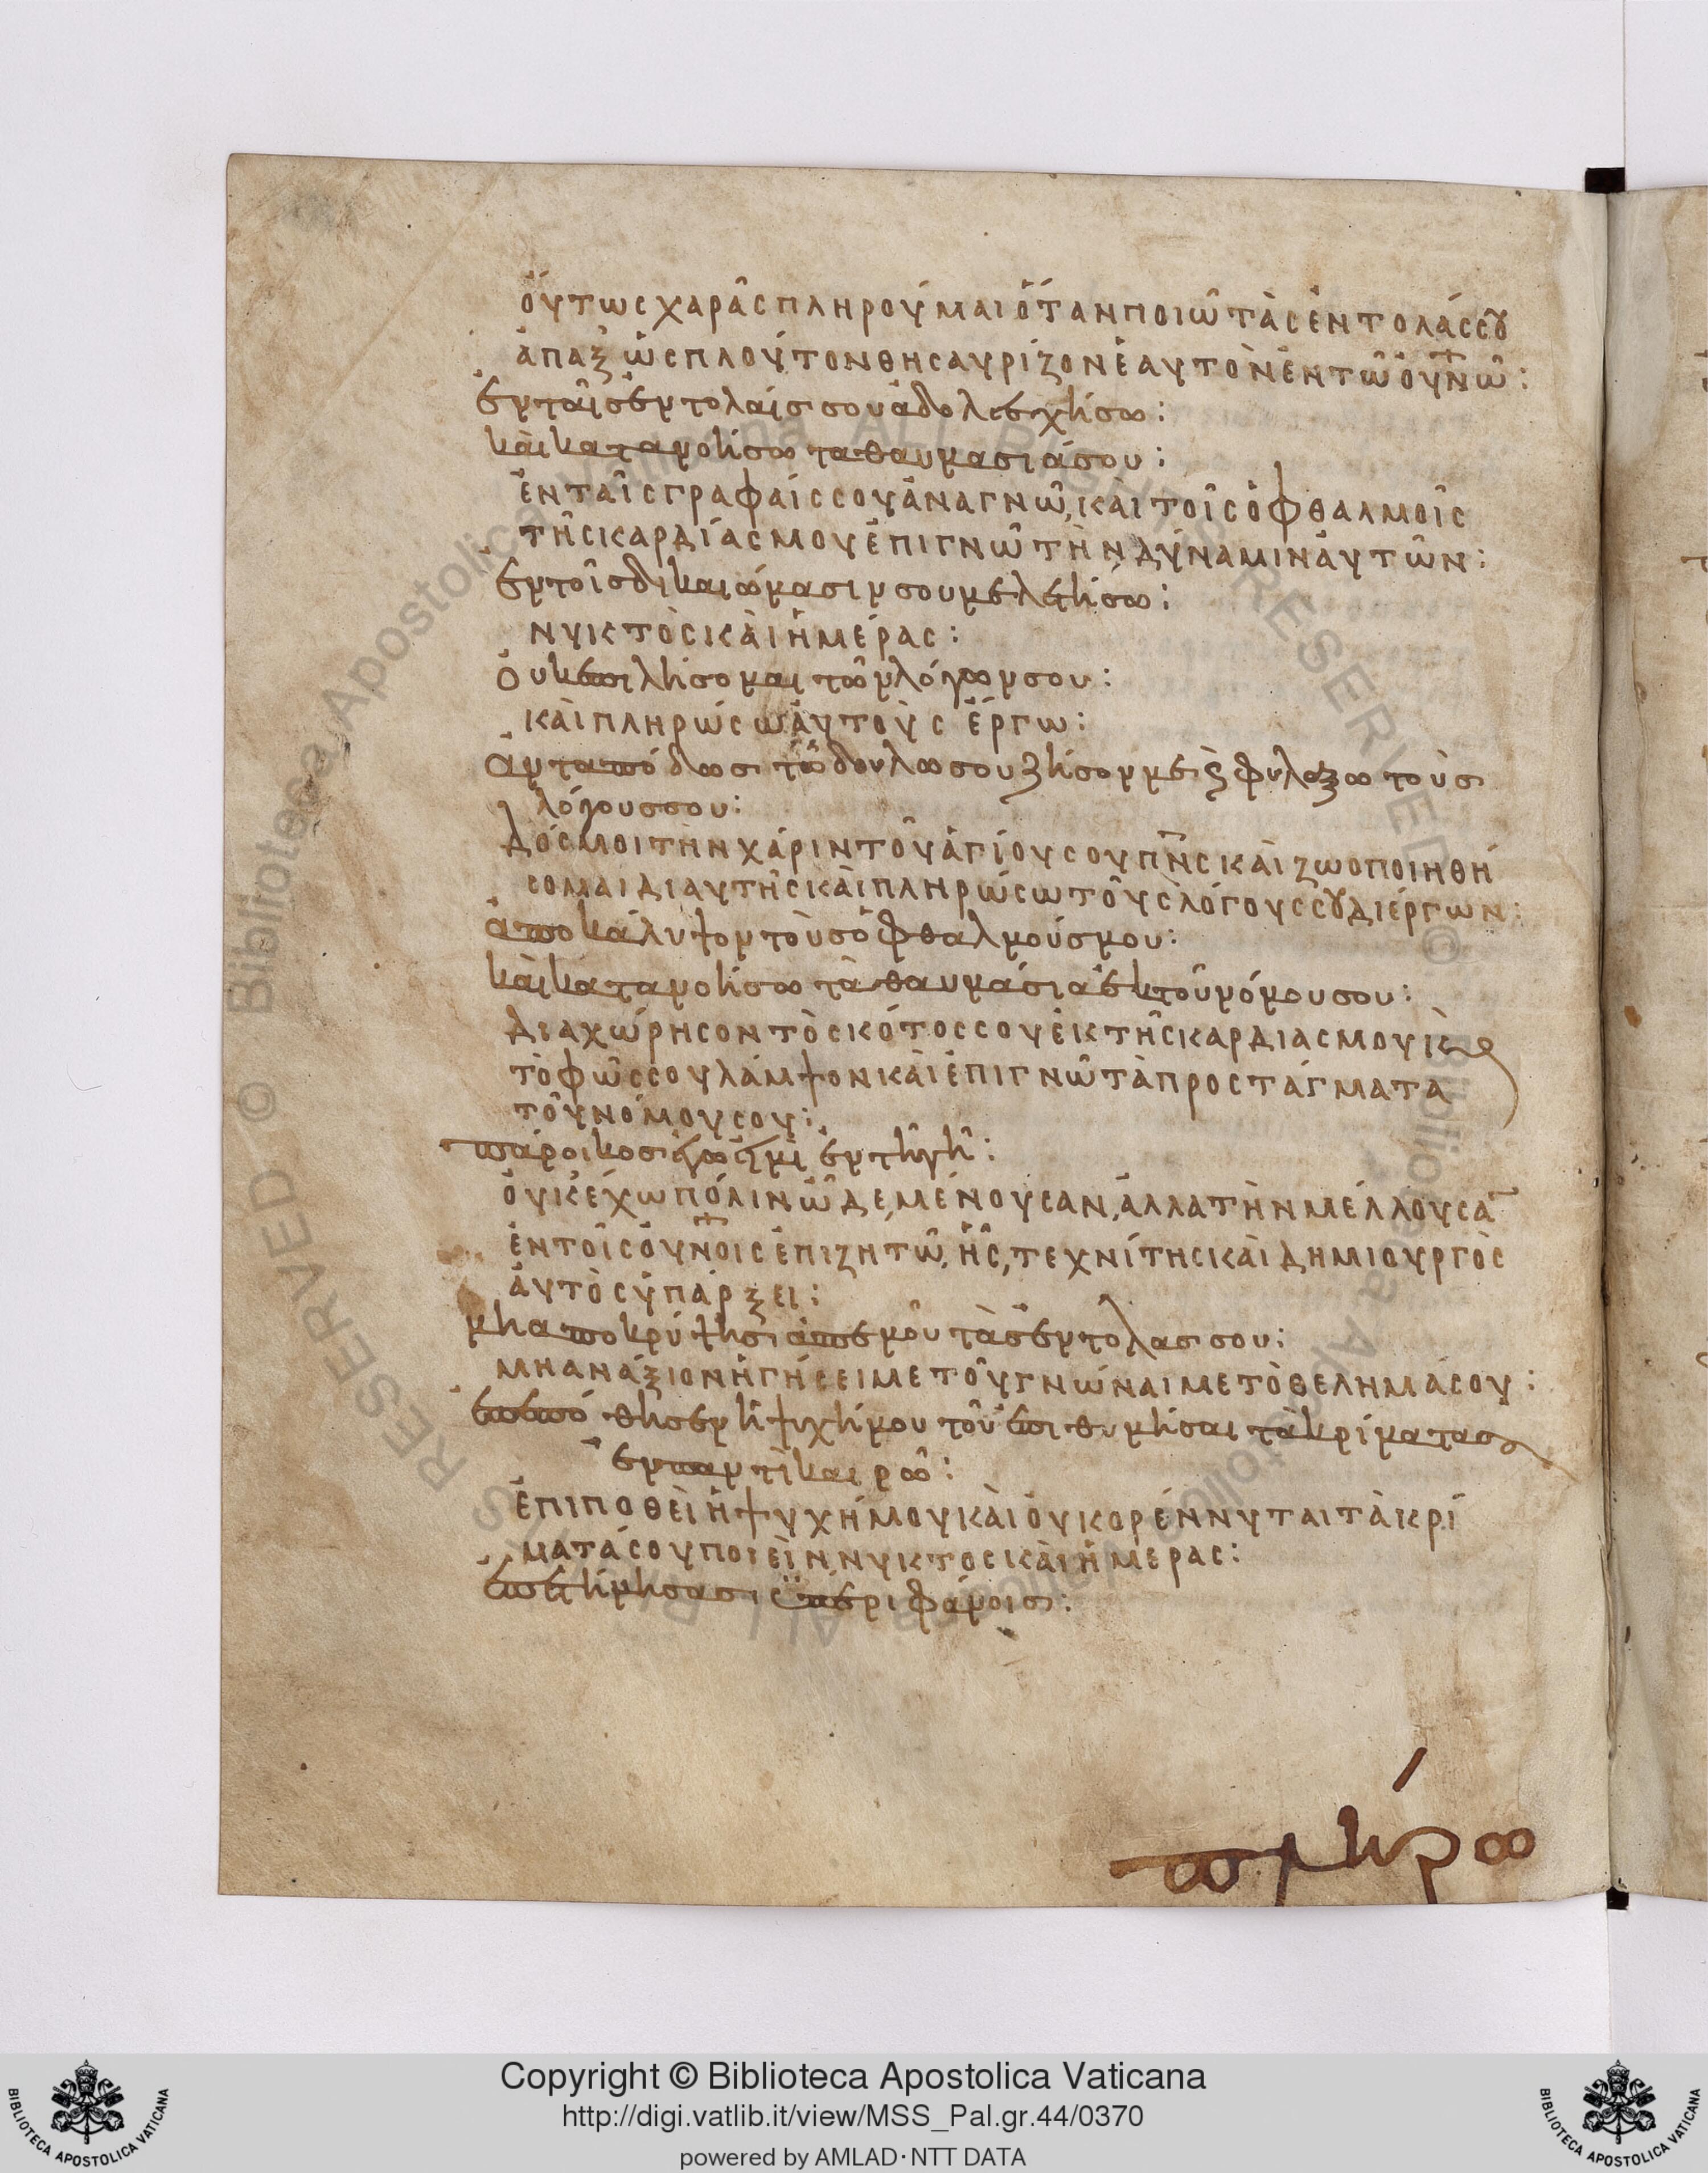 οὕτως χαρᾶς πληροῦμαι ὅταν ποιῶ τὰς ἐντολάς σου
ἅπαξ ὡς πλοῦτον θησαυρίζον ἑαυτὸν ἐν τῶ οὐνῶ:
ἐν ταῖς ἐντολαίς σου ἀδολεσχήσω:
καὶ κατανοήσω τα θαυμασιά σου:
ἐν ταῖς γραφαίς σου ἀναγνῶ, καὶ τοῖς ὀφθαλμοῖς
τῆς καρδίας μου ἐπιγνῶ τὴν δύναμιν ἀυτῶν:
ἐν τοῖς δικαιώμασιν σου μελετήσω:
νυκτὸς καὶ ἡμέρας:
Οὐκ επιλήσομαι τῶν λόγων σου:
καὶ πληρώσω ἀυτοὺς ἔργω:
ἀνταπόδωσι τῶ δουλω σου ζήσον με ϗ φυλαξω τοὺς
λόγους σου:
Δός μοι τὴν χάριν τοῦ ἁγίου σου πν̅ς καὶ ζωοποιηθή
σομαι δι αυτῆς καὶ πληρώσω τοὺς λόγους σου δι έργων:
ἀποκάλυψον τοὺς ὀφθαλμούς μου:
καὶ κατανοήσω τὰ θαυμάσια ἐκ τοῦ νόμου σου:
Διαχώρησον τὸ σκότος σου ἐκ τῆς καρδιας μου κὲ
τὸ φῶς σου λάμψον καὶ ἐπιγνῶ τὰ προστάγματα
τοῦ νόμου σου:
πάροικος ἐγω εἰμι ἐν τῆ γῆ:
οὐκ έχω πόλιν ὧδε μένουσαν, ἀλλα τὴν μέλλουσα̅
ἐν τοῖς οὐνοις ἐπιζητῶ, ἧς, τεχνίτης καὶ δημιουργὸς
ἀυτὸς ὑπάρξει:
μη αποκρύψης ἀπ εμοῦ τὰς ἐντολας σου:
μη ανάξιον ἡγήσει με τοῦ γνώναι με τὸ θελημά σου:
ἐπεπόθησεν ἡ ψυχή μου τοῦ ἐπιθυμήσαι τὰ κρίματα σου
ἐν παντὶ καιρῶ:
ἐπιποθεὶ ἡ ψυχή μου καὶ οὐ κορέννυται τὰ κρί
ματά σου ποιεὶν, νυκτος καὶ ἡμέρας:
ἐπετίμησας ὑπερηφάνοις:
Copyright © Biblioteca Apostolica Vaticana
http://digi.vatlib.it/view/MSS_Pal.gr.44/0370
powered by AMLAD·NTT DATA
BIBLIOTECA APOSTOLICA VATICANA
BIBLIOTECA APOSTOLICA VATICANA